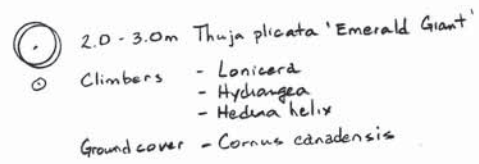 2.0 - 3.0m Thuja plicata 'Emerald Giant'
Climbers - Lonicera
- Hydrangea
- Hedera helix
Ground cover - Cornus canadensis